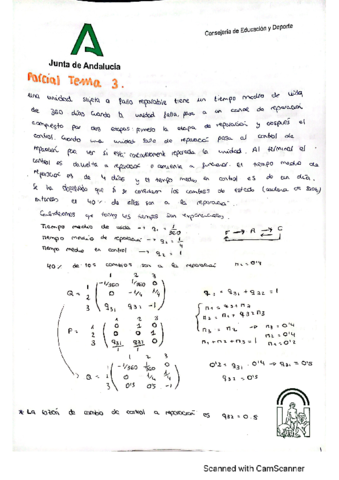 Consejería de Educación y Deporte
Junta de Andalucía
Parcial Tema 3.
una unidad sujeta a fallo reparable tiene un tiempo medio de vida
de 360 días. Cuando la unidad falla, pasa a un canal de reparación
compuesto por dos etapas: primero la etapa de reparación y después el
control. Cuando una unidad sale de reparación pasa al control de
reparación por ver si está correctamente reparada la unidad. Al terminar el
control es devuelta a reparación o comienza a funcionar. El tiempo medio de
reparación es de 4 días y el tiempo medio en control es de un día.
Se ha observado que si se consideran los cambios de estado
entonces el 40% de ellos son a la reparación.
Consideramos que todos los tiempos son exponenciales.
Tiempo medio de vida → q1 = 1/360
tiempo medio de reparación → q2 = 1/4
tiempo medio en control → q3 = 1
F → R → C
40% de los cambios son a la reparación
n2 = 0'4
1 2 3
Q = 1 2 3 ( -1/360 1/360 0
0 -1/4 1/4
q31 q32 -1 )
q31 + q32 = 1
1 2 3
P = 1 2 3 ( 0 1 0
0 0 1
q31 q32 0 )
1 1
n3 = n2 → n3 = 0'4
n1 + n2 + n3 = 1 → n1 = 0'2
1 2 3
Q = 1 2 3 ( -1/360 1/360 0
0 -1/4 1/4
0'5 0'5 -1 )
0'2 = q31 · 0'4 → q31 = 0'5
q32 = 0'5
* La tasa de cambio de control a reparación es q32 = 0.5
1
Scanned with CamScanner